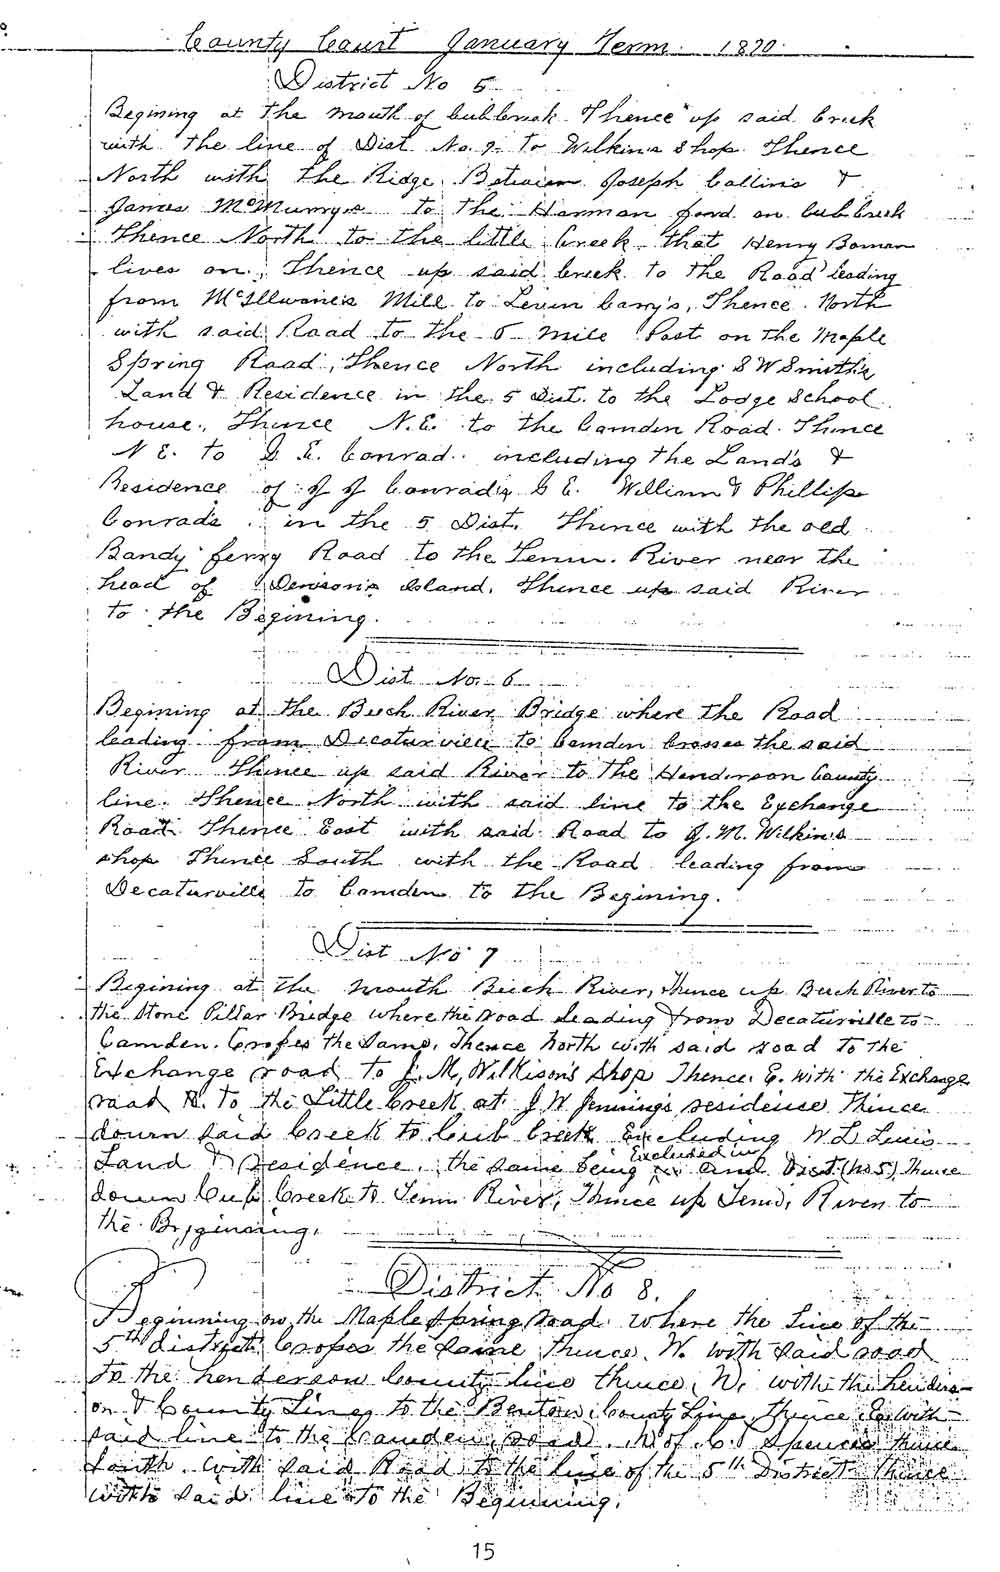 County Court January Term. 1870.
District No 5
Begining at the mouth of Cub Creek Thence up said Creek
with the line of Dist No. 7 to Wilkins Shop. Thence
North with the Ridge Between Joseph Collins &
James McMurrys to the Harman ford on Cub Creek
Thence North to the little Creek that Henry Boman
lives on, Thence up said Creek to the Road leading
from McIllwaines Mill to Levin Carry's, Thence North
with said Road to the 5 mile Post on the Maple
Spring Road, Thence North including S W Smith's
Land & Residence in the 5 Dist. to the Lodge School
house, Thence N.E. to the Camden Road. Thence
N E. to G. E. Conrad. including the Land's &
Residence of J J Conrad's G E. William & Phillip
Conrad's in the 5 Dist. Thence with the old
Bandy ferry Road to the Tenn. River near the
head of Denison's Island, Thence up said River
to the Begining.
Dist No. 6
Begining at the Beech River Bridge where the Road
leading from Decaturville to Camden Crosses the said
River Thence up said River to the Henderson County
line. Thence North with said line to the Exchange
Road Thence East with said Road to J. M. Wilkins
shop Thence South with the Road leading from
Decaturville to Camden to the Begining.
Dist No 7
Begining at the mouth Beech River, Thence up Beech River to
the Stone Pillar Bridge where the road leading from Decaturville to
Camden. Crosses the Same, Thence North with said road to the
Exchange road to J. M, Wilkison's Shop Thence. E. with the Exchange
road to the Little Creek at J W Jennings residense Thence
down said Creek to Cub Creek Excluding W L Lewis
Land & residence, the same being Excluded in and Dist. (No 5), Thence
down Cub Creek to Tenn River, Thence up Tenn, River to
the Begginning.
District No 8.
Beginning on the Maple Spring road where the Line of the
5th district Crosses the Same thence, W. with said road
to the henderson County line thence, N, withe the henders-
on & County Line, to the Benton County Line, thence, E. with
said line to the Camden road. N of C. Spences thence
South. with said Road to the line of the 5th District thence
with said line to the Beginning.
15